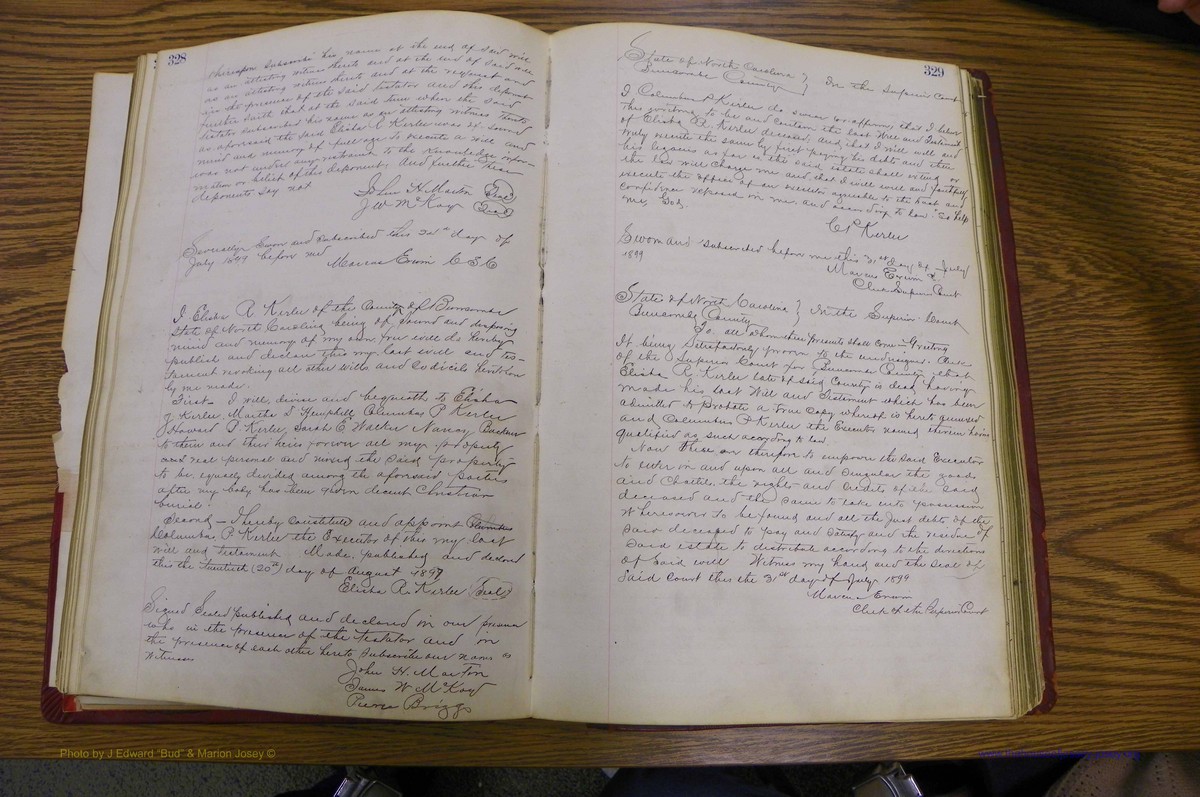 328
thereupon subscribe his name at the end of said will
as an attesting witness thereto and at the request and
in the presence of the said testator and this deponent
further saith that at the said time when the said
testator subscribed his name as an attesting witness thereto
as aforesaid the said Elisha R Kerlee was of sound
mind and memory of full age to execute a will and
was not under any restraint to the knowledge infor-
mation or belief of this deponent, and further these
deponents say not
John H. Marton (Seal)
J W McKoy (Seal)
Severally sworn and subscribed this 24th day of
July 1899 before me
Marcus Erwin C S C
I Elisha R Kerlee of the County of Buncombe
State of North Carolina being of sound and disposing
mind and memory of my own free will do hereby
publish and declare this my last will and tes-
tament revoking all other wills and codicils heretofore
by me made.
First I will devise and bequeath to Elisha
G Kerlee, Martha S Hemphill Columbus P Kerlee
Howard T Kerlee, Sarah E Walker Nancy Buckner
to them and their heirs forever all my property
and real personal and mixed the said property
to be equally divided among the aforesaid parties
after my body has been given decent Christian
burial.
Second - I hereby constitute and appoint Columbus
Columbus P. Kerlee the Executor of this my last
will and testament Made, published and declared
this the twentieth (20th) day of August 1897
Elisha R. Kerlee (Seal)
Signed Sealed published and declared in our presence
who in the presence of the testator and in
the presence of each other hereto subscribe our names as
witnesses
John H. Marton
James W McKoy
Pierce Briggs
329
State of North Carolina } In the Superior Court
Buncombe County }
I Columbus P Kerlee do swear or affirm that I believe
this writing to be and contain the last Will and Testament
of Elisha R Kerlee deceased, and that I will well and
truly execute the same by first paying his debts and then
his legacies as far as the said estate shall extend or
the law will charge me and that I will well and faithfully
execute the office of an executor agreeable to the trust and
confidence reposed in me and according to law. So help
me, God.
C P Kerlee
Sworn and subscribed before me this 31st day of July
1899
Marcus Erwin
Clerk Superior Court
State of North Carolina } In the Superior Court
Buncombe County
To all whom these presents shall come - Greeting
It being satisfactorily proven to the undersigned Clerk
of the Superior Court for Buncombe County that
Elisha R. Kerlee late of said County is dead, having
made his last Will and Testament which has been
admitted to probate a true copy whereof is hereto annexed
and Columbus P Kerlee the Executor named therein having
qualified as such according to law.
Now these are therefore to empower the said Executor
to enter in and upon all and singular the goods
and Chattels, the rights and credits of the said
deceased and the same to take into possession
wheresoever to be found and all the just debts of the
said deceased to pay and satisfy and the residue of
said estate to distribute according to the directions
of said will Witness my hand and the seal of
said Court this the 31st day of July 1899
Marcus Erwin
Clerk of the Superior Court
Photo by J Edward "Bud" & Marion Josey ©